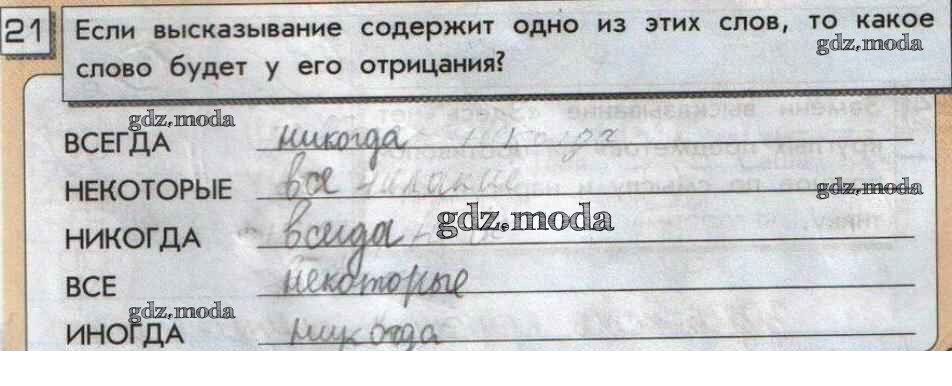 21 Если высказывание содержит одно из этих слов, то какое
gdz.moda
слово будет у его отрицания?
gdz.moda
ВСЕГДА никогда
НЕКОТОРЫЕ все
gdz.moda
НИКОГДА всегда
gdz.moda
ВСЕ некоторые
gdz.moda
ИНОГДА никогда